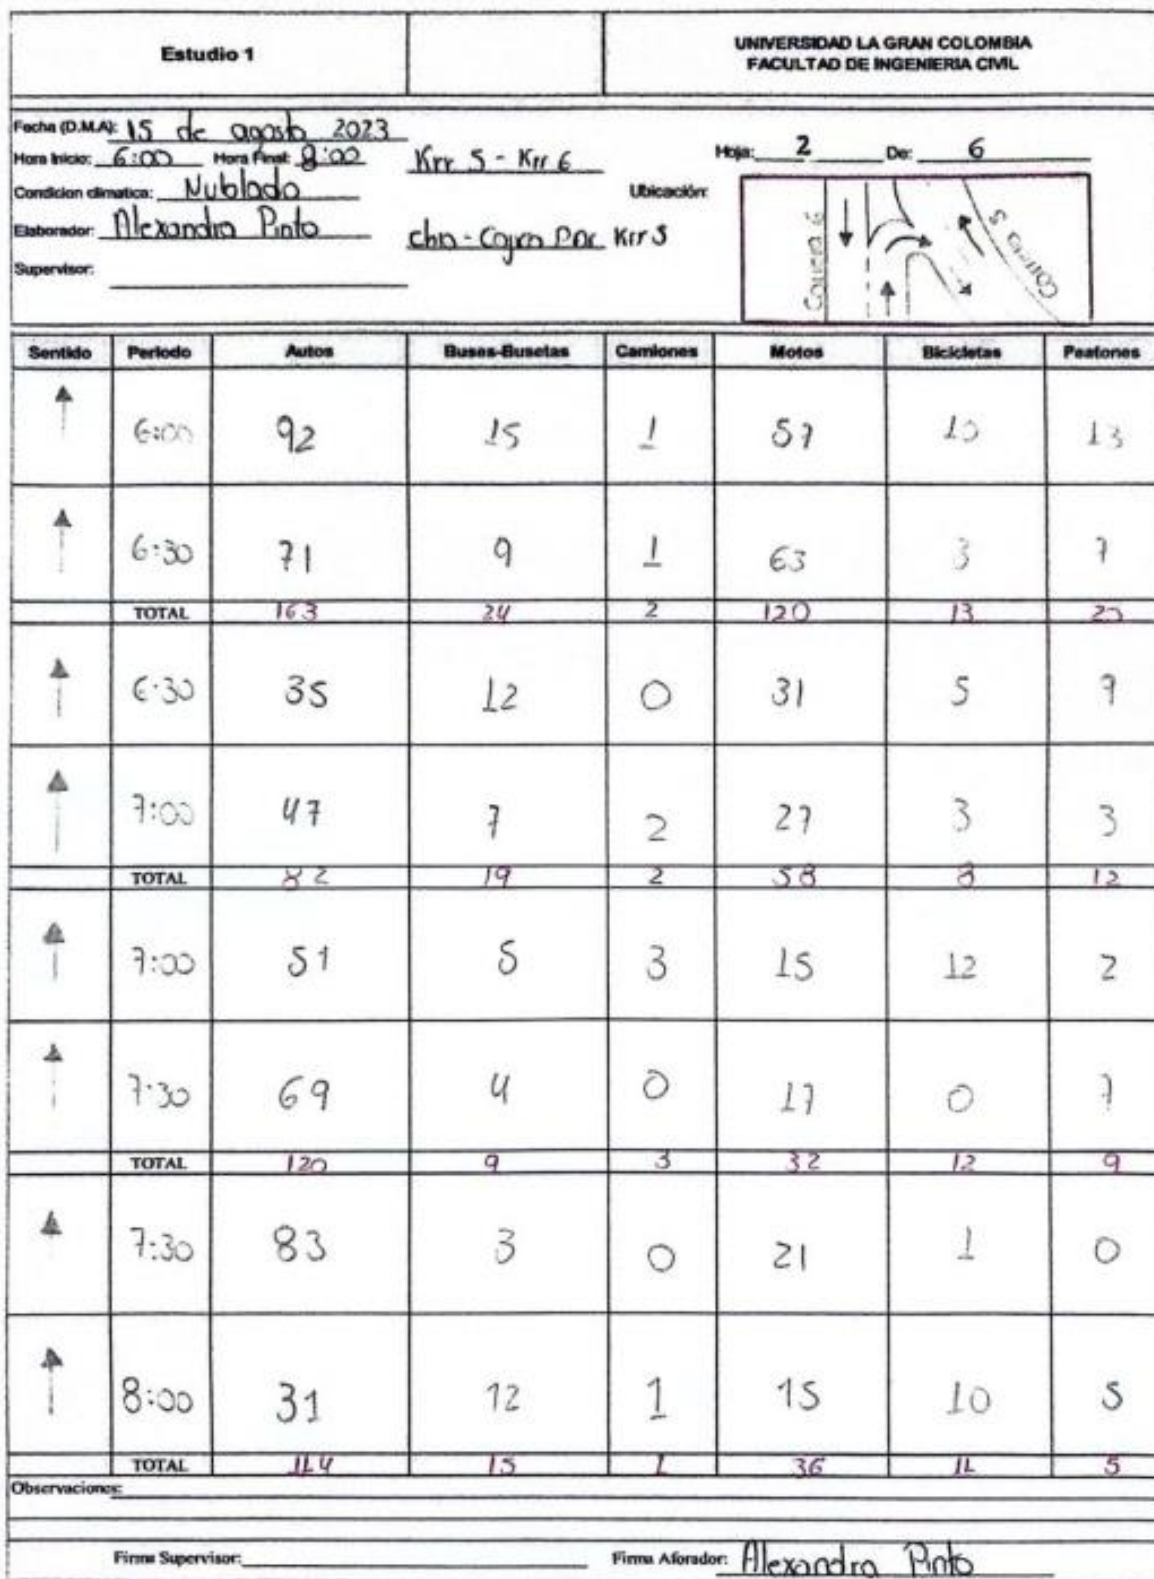 Estudio 1
UNIVERSIDAD LA GRAN COLOMBIA
FACULTAD DE INGENIERIA CIVIL
Fecha (D.M.A): 15 de agosto 2023
Hora Inicio: 6:00 Hora Final: 8:00 Krr 5 - Krr 6 Hoja: 2 De: 6
Condicion climatica: Nublado Ubicación:
Elaborador: Alexandra Pinto Krr 5
Supervisor:
Carrera 6
Carrera 5
Sentido Periodo Autos Buses-Busetas Camiones Motos Bicicletas Peatones
6:00 92 15 1 57 10 13
6:30 71 9 1 63 3 7
TOTAL 163 24 2 120 13 20
6:30 35 12 0 31 5 9
7:00 47 7 2 27 3 3
TOTAL 82 19 2 58 8 12
7:00 51 5 3 15 12 2
7:30 69 4 0 17 0 7
TOTAL 120 9 3 32 12 9
7:30 83 3 0 21 1 0
8:00 31 12 1 15 10 5
TOTAL 114 15 1 36 11 5
Observaciones:
Firma Supervisor: Firma Aforador: Alexandra Pinto